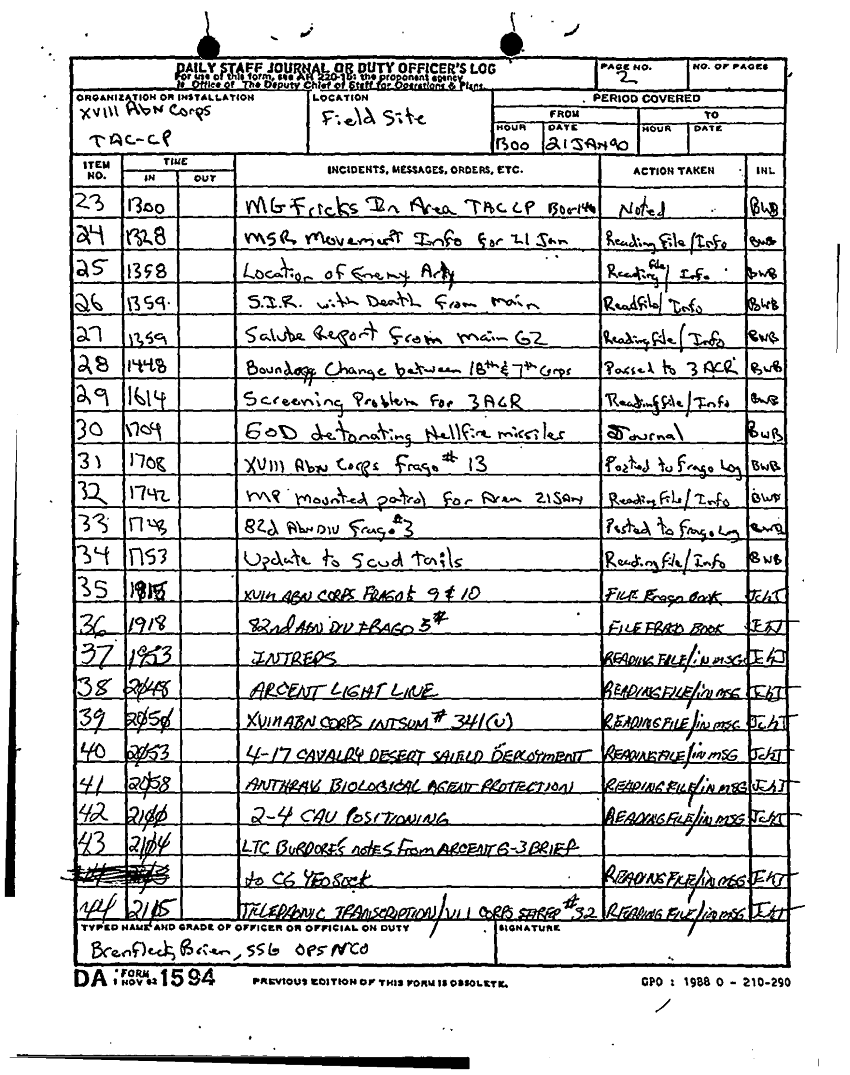 DAILY STAFF JOURNAL OR DUTY OFFICER'S LOG
For use of this form, see AR 220-15; the proponent agency
is Office of The Deputy Chief of Staff for Operations & Plans.
PAGE NO.
2
NO. OF PAGES
ORGANIZATION OR INSTALLATION
XVIII Abn Corps
TAC-CP
LOCATION
Field Site
PERIOD COVERED
FROM
TO
HOUR DATE HOUR DATE
1300 21JAN90
ITEM NO. TIME IN OUT INCIDENTS, MESSAGES, ORDERS, ETC. ACTION TAKEN INL
23 1300 MG Fricks In Area TAC CP Noted BWB
24 1328 MSR Movement Info for 21 Jan Reading File/Info BWB
25 1358 Location of Enemy Arty Reading file/Info BWB
26 1359 S.I.R. with Death from main Readfile/Info BWB
27 1359 Salute Report from main G2 Reading File/Info BWB
28 1448 Boundary Change between 18th & 7th Corps Passed to 3 ACR BWB
29 1614 Screening Problem for 3ACR Reading file/Info BWB
30 1704 EOD detonating Hellfire missiles Journal BWB
31 1708 XVIII Abn Corps Frago # 13 Posted to Frago Log BWB
32 1742 MP mounted patrol for Area 21JAN Reading File/Info BWB
33 1748 82d Abn DIV Frago #3 Posted to Frago Log BWB
34 1753 Update to Scud tails Reading File/Info BWB
35 XVIII ABN CORPS FRAGO's 9 & 10 FILE Frago BOOK JChJ
36 1918 82nd ABN DIV FRAGO 3# FILE FRAGO BOOK
37 1953 INTREPS READING FILE/in MSG
38 2048 ARCENT LIGHT LINE READING FILE/in MSG
39 2050 XVIII ABN CORPS INTSUM # 341(U) READING FILE/in MSG
40 2053 4-17 CAVALRY DESERT SHIELD DEPLOYMENT READING FILE/in MSG
41 2058 ANTHRAX BIOLOGICAL AGENT PROTECTION READING FILE/in MSG
42 2100 2-4 CAV POSITIONING READING FILE/in MSG
43 2104 LTC BURDORE'S notes From ARCENT G-3 BRIEF
to CG YEOSOCK READING FILE/in MSG
44 2115 TELEPHONIC TRANSCRIPTION/VII CORPS SITREP #32 READING FILE/in MSG
TYPED NAME AND GRADE OF OFFICER OR OFFICIAL ON DUTY
Brian, SSG OPS NCO
SIGNATURE
DA FORM 1 NOV 62 1594
PREVIOUS EDITION OF THIS FORM IS OBSOLETE.
GPO : 1988 O - 210-290